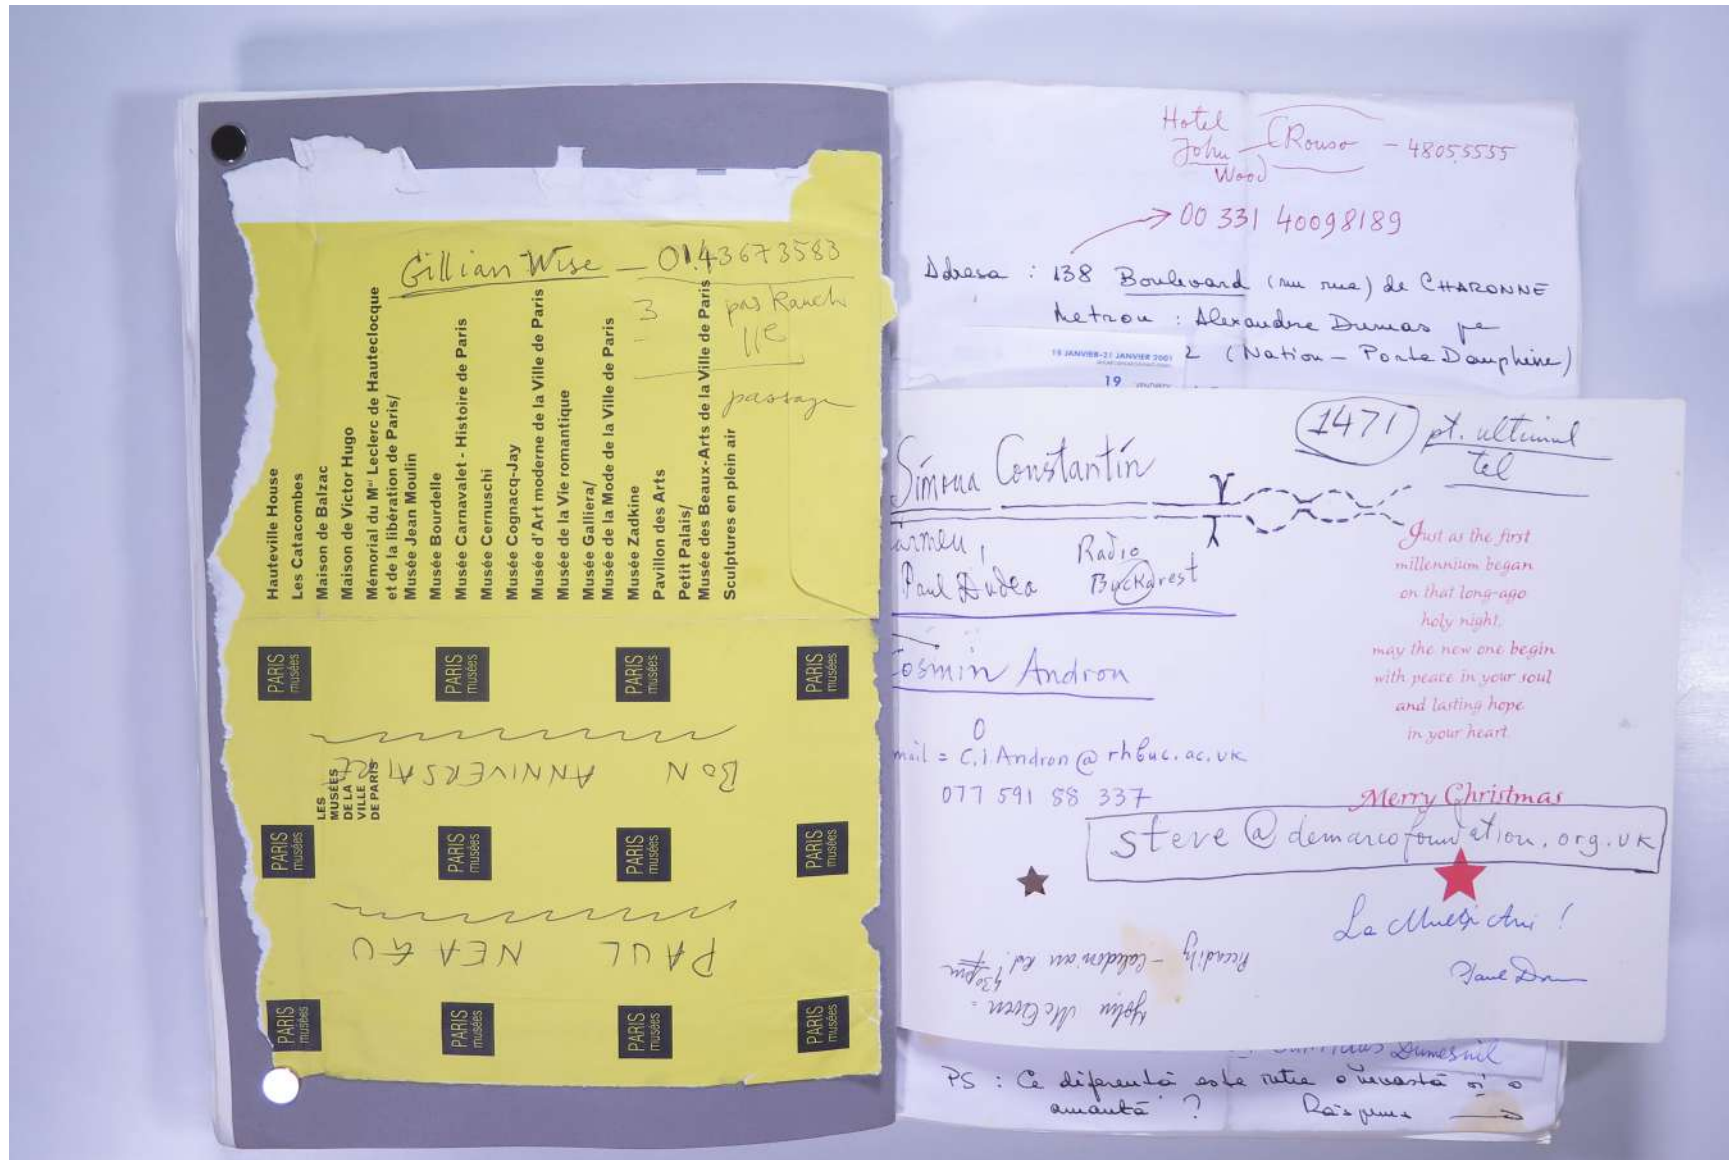 Gillian Wise — 01.43673583
3 pas Ranch
11e
passage
Hauteville House
Les Catacombes
Maison de Balzac
Maison de Victor Hugo
Mémorial du Mal Leclerc de Hauteclocque
et de la libération de Paris/
Musée Jean Moulin
Musée Bourdelle
Musée Carnavalet - Histoire de Paris
Musée Cernuschi
Musée Cognacq-Jay
Musée d'Art moderne de la Ville de Paris
Musée de la Vie romantique
Musée Galliera/
Musée de la Mode de la Ville de Paris
Musée Zadkine
Pavillon des Arts
Petit Palais/
Musée des Beaux-Arts de la Ville de Paris
Sculptures en plein air
PARIS musées
PARIS musées
PARIS musées
PARIS musées
BON ANNIVERSAIRE
LES
MUSÉES
DE LA
VILLE
DE PARIS
PARIS musées
PARIS musées
PARIS musées
PARIS musées
PAUL NEAGU
PARIS musées
PARIS musées
PARIS musées
PARIS musées
Hotel
John Rouso - 48055555
Wood
00 331 40098189
Adresa : 138 Boulevard (nu rue) de CHARONNE
Metrou : Alexandre Dumas pe
2 (Nation - Porte Dauphine)
18 JANVIER-21 JANVIER 2001
19
1471 pt. ultimul
tel
Simona Constantin
armen, Radio
Paul Dudea Buckarest
osmin Andron
0
mail = C.I.Andron@rhbuc.ac.uk
077 591 88 337
Just as the first
millennium began
on that long-ago
holy night,
may the new one begin
with peace in your soul
and lasting hope
in your heart.
Merry Christmas
steve@demarcofoundation.org.uk
La Mulți Ani !
Paul
John McEwen =
Picadily - Caledonian Rd. 430pm
Dumesnil
PS : Ce diferență este între o nevastă și o
amantă ? Răspuns →